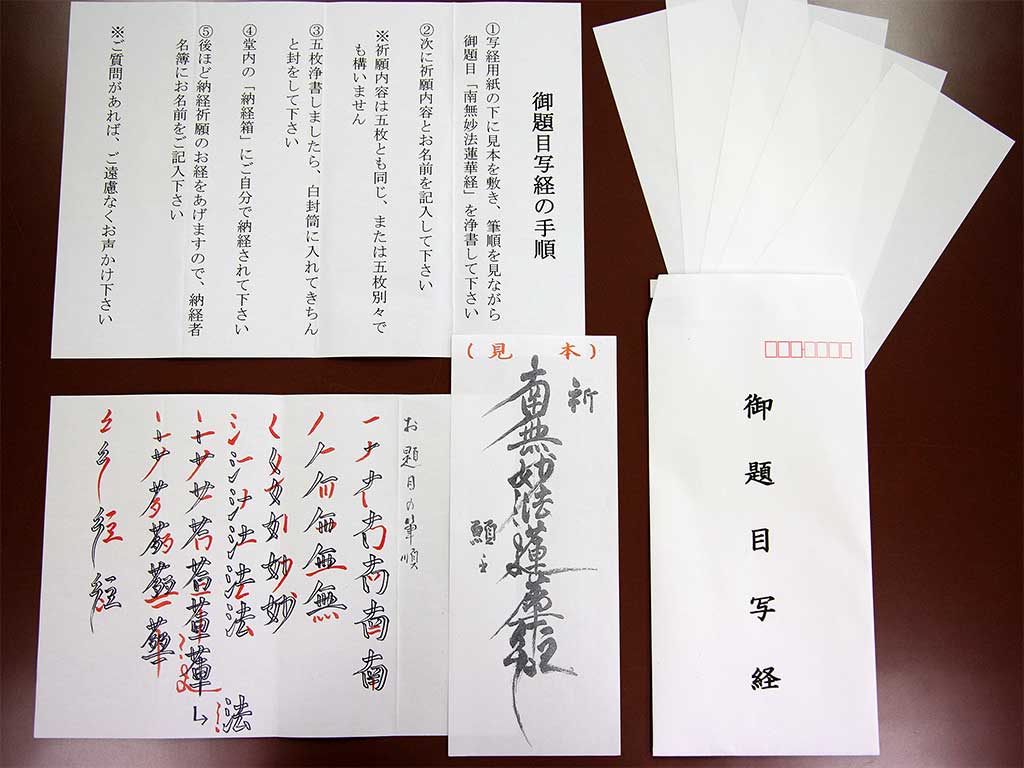 御題目写経の手順
①写経用紙の下に見本を敷き、筆順を見ながら
御題目「南無妙法蓮華経」を浄書して下さい
②次に祈願内容とお名前を記入して下さい
※祈願内容は五枚とも同じ、または五枚別々で
も構いません
③五枚浄書しましたら、白封筒に入れてきちん
と封をして下さい
④堂内の「納経箱」にご自分で納経されて下さい
⑤後ほど納経祈願のお経をあげますので、納経者
名簿にお名前をご記入下さい
※ご質問があれば、ご遠慮なくお声かけ下さい
(見本)
祈
南無妙法蓮華経
願主
お題目の筆順
南南南
無無無
妙妙
法法
法
華
経
御題目写経